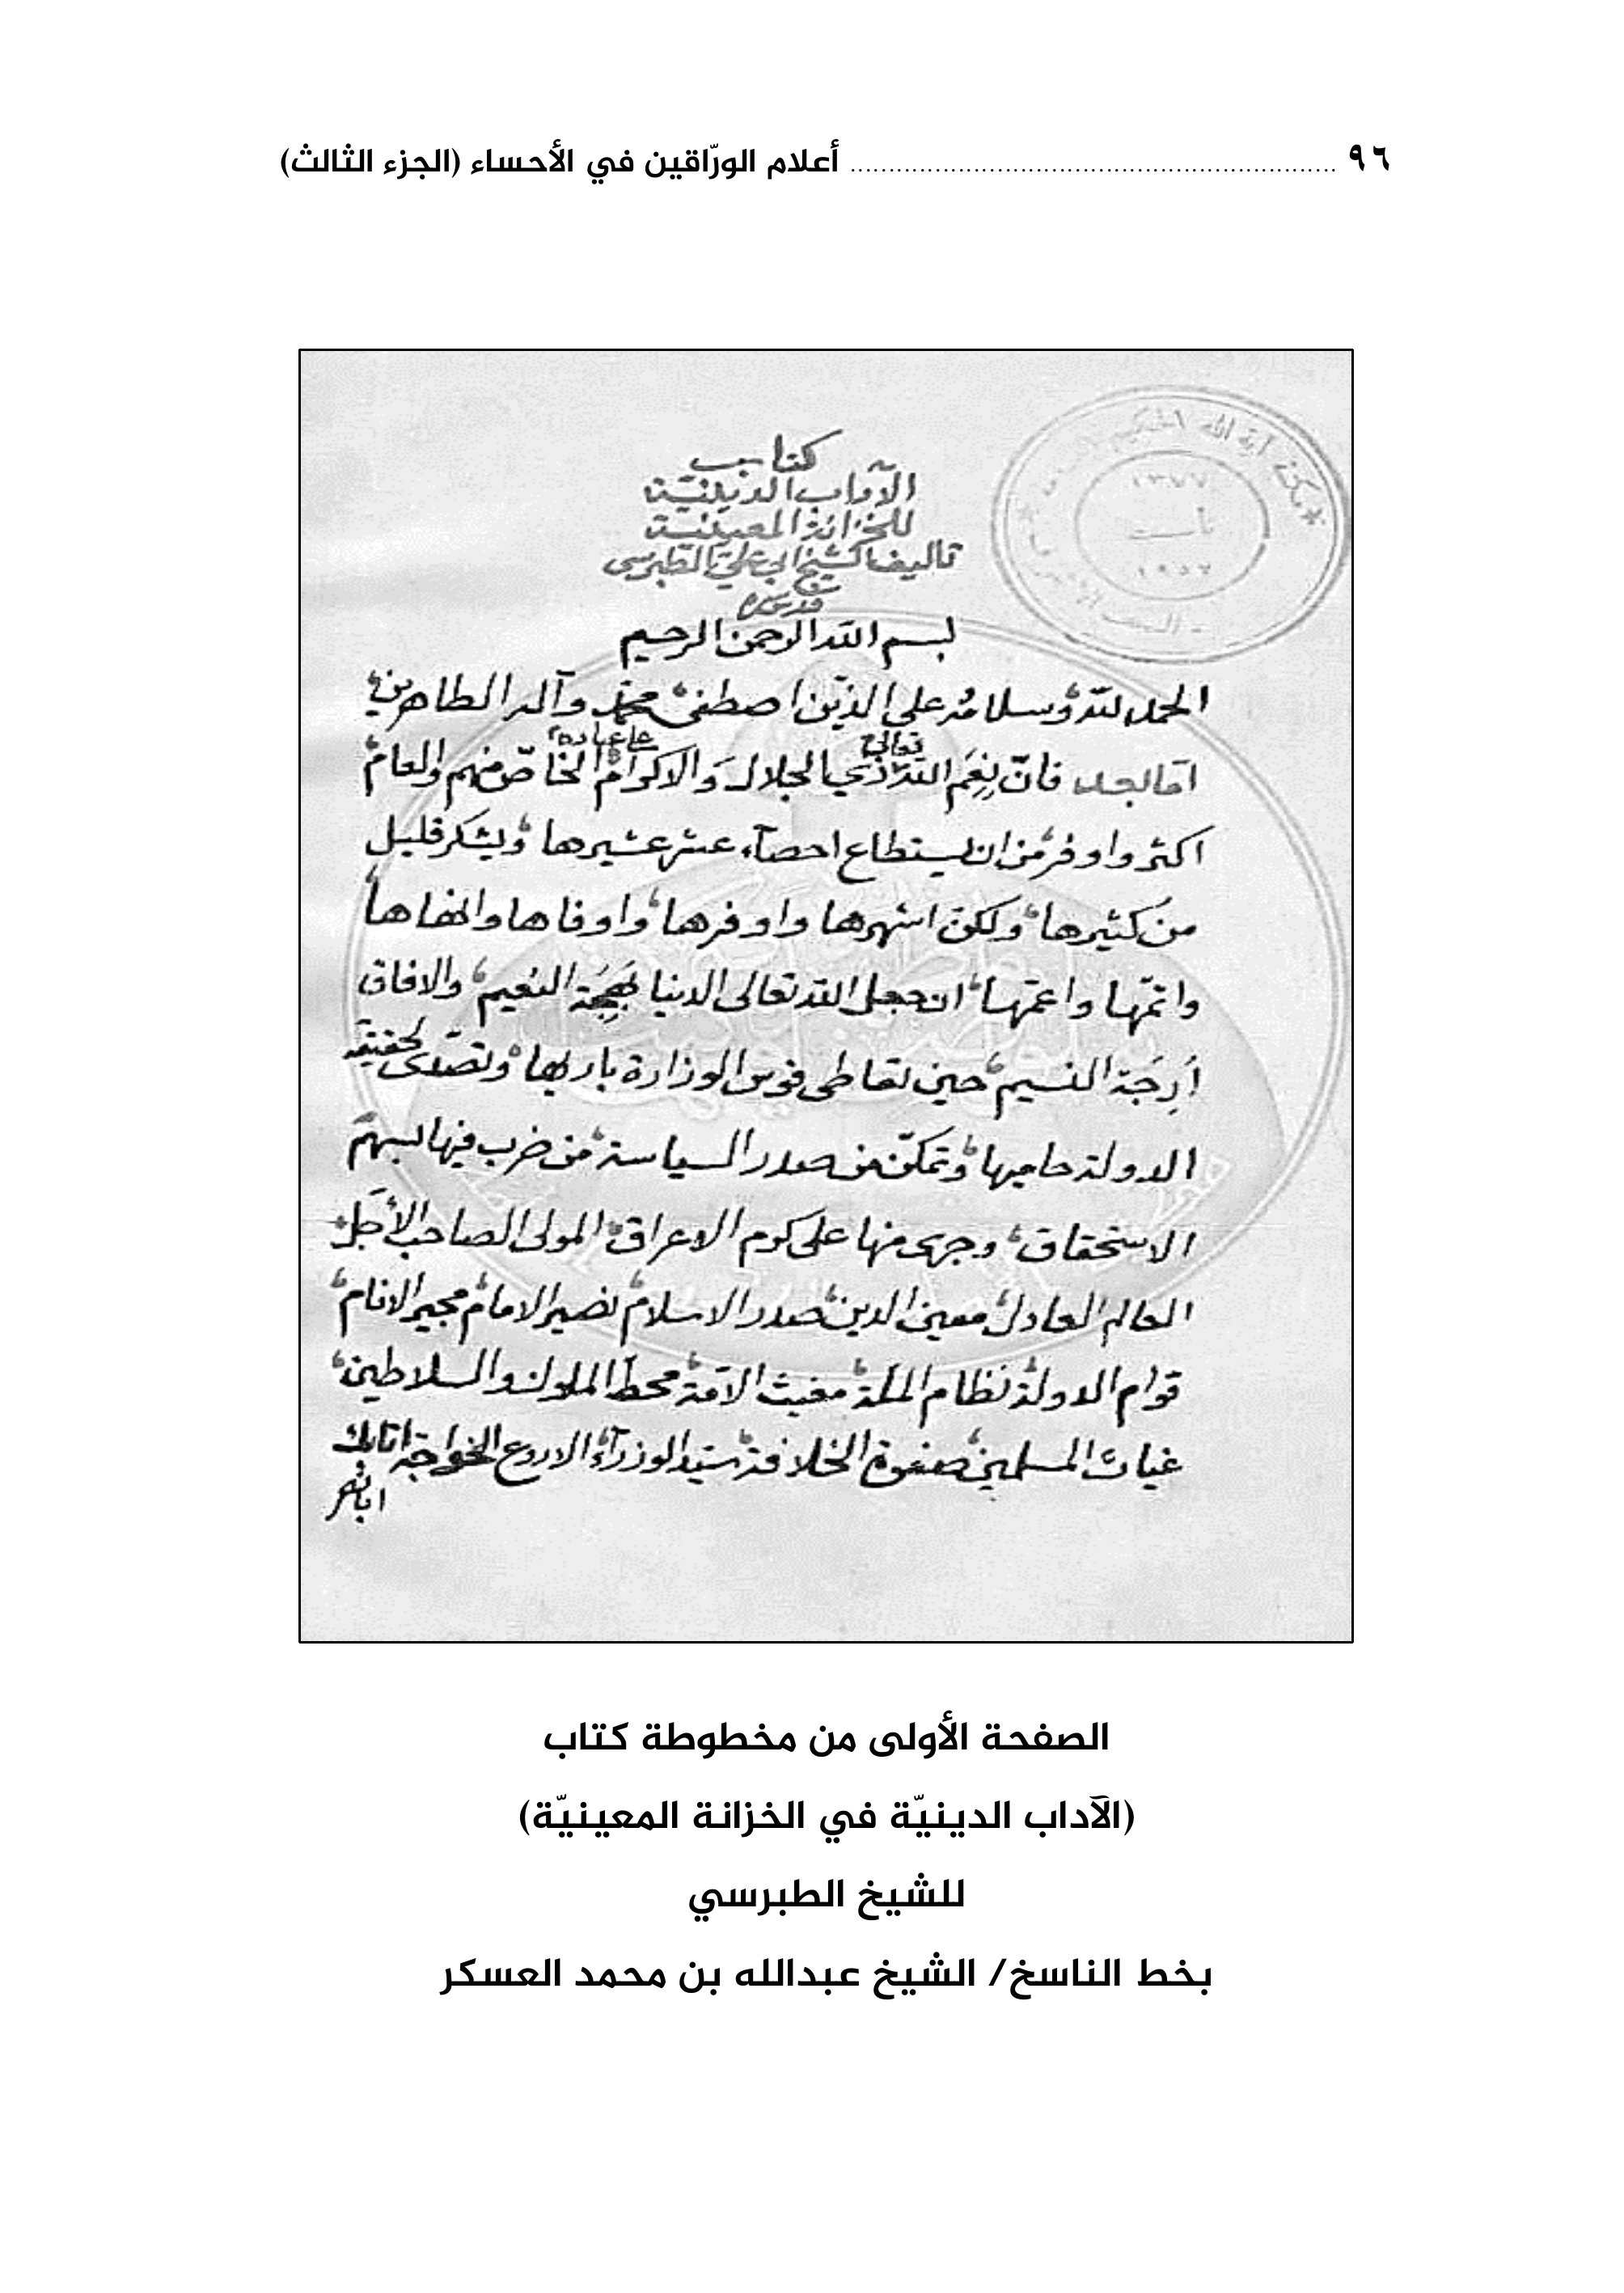 ٩٦ ........................................ أعلام الورّاقين في الأحساء (الجزء الثالث)
مكتبة آية الله الحكيم
١٣٧٧
تأسست
١٩٥٧
كتاب
الآداب الدينيّة
للخزانة المعينيّة
تاليف الشيخ ابي علي الطبرسي
قدس سره
بسم الله الرحمن الرحيم
الحمد لله وسلامه على الذين اصطفى محمد وآله الطاهرين
اما بعد فانّ نِعَم الله تعالى ذي الجلال وَالاكرام على عباده الخاصّ منهم والعام
اكثر واوفر من ان يستطاع احصآء عشر عشيرها ويشكر قليل
من كثيرها ولكن اشهرها واوفرها واوفاها
واتمّها واعمّها ان جعل الله تعالى الدنيا بهجة النعيم والافاق
أرِجَة النسيم حين تعاطى قوس الوزارة باريها وتصدى لحقيقة
الدولة حاميها وتمكّن من صدر السياسة من ضرب فيها بسهم
الاستحقاق وجرى منها على كرم الاعراق المولى الصاحب الأجَل
العالم العادل معين الدين صدر الاسلام نصير الامام مجير الانام
قوام الدولة نظام الملّة مغيث الامّة محط الملوك والسلاطين
غياث المسلمين صفوة الخلافة سيّد الوزرآء الاروع الخواجة اتابك
ابا نصر
الصفحة الأولى من مخطوطة كتاب
(الآداب الدينيّة في الخزانة المعينيّة)
للشيخ الطبرسي
بخط الناسخ/ الشيخ عبدالله بن محمد العسكر